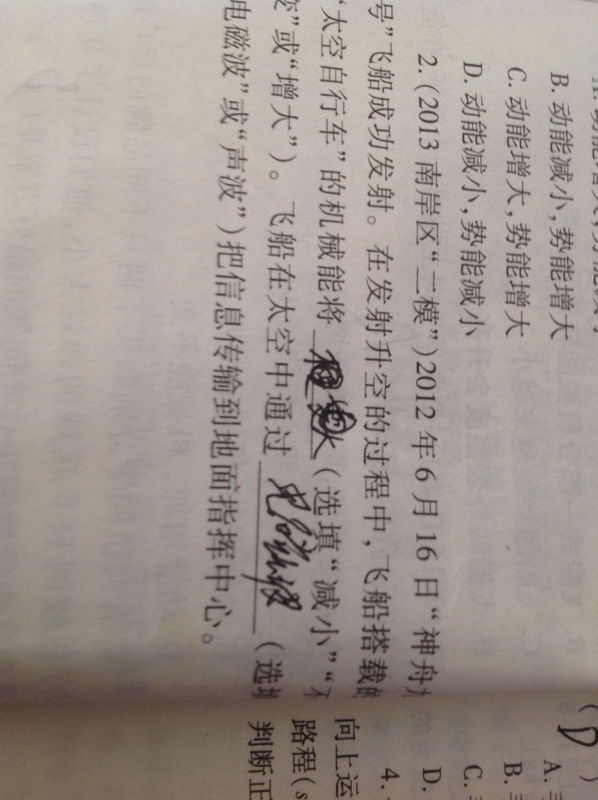 B. 动能减小,势能增大
C. 动能增大,势能增大
D. 动能减小,势能减小
2. (2013 南岸区“二模”)2012 年 6 月 16 日“神舟
号”飞船成功发射。在发射升空的过程中,飞船搭载
“太空自行车”的机械能将 增大 (选填“减小”“
变”或“增大”)。飞船在太空中通过 电磁波 (选
电磁波”或“声波”)把信息传输到地面指挥中心。
( D )
A.
B.
C.
D.
4.
向上运
路程(s
判断正